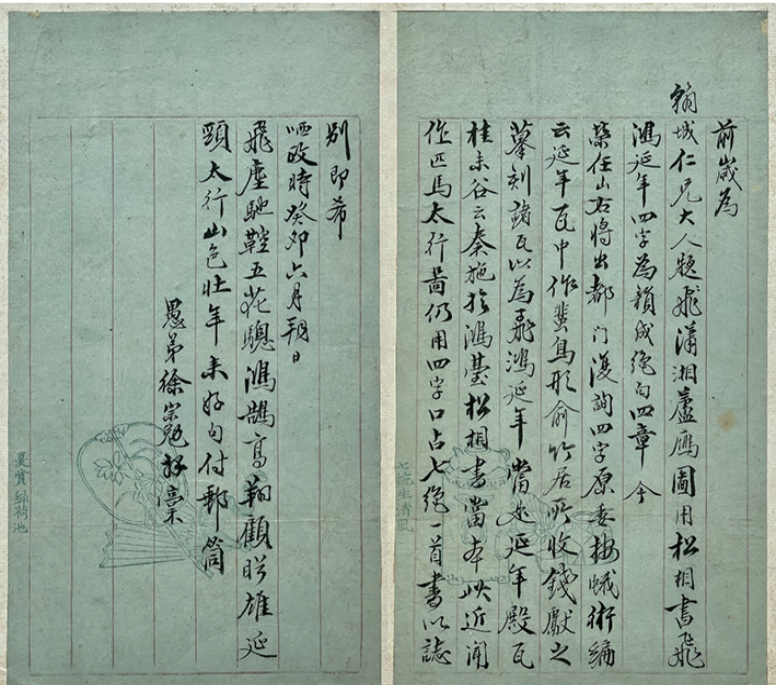 前歲為
翰城仁兄大人題瀟湘蘆雁圖用松相書飛
鴻延年四字為韻成絕句四章今
榮任山右將出都門復詢四字原委按蛾術編
云延年瓦中作蜚鳥形俞竹居所收錢獻之
摹刻諸瓦以為飛鴻延年當如延年殿瓦
桂未谷云秦施於鴻臺松相書當本此近聞
作匹馬太行圖仍用四字口占七絕一首書以誌
別即希
哂政時癸卯六月朔日
飛塵馳鞚五花驄鴻鵠高翔顧眄雄延
頸太行山色壯年來好句付郵筒
愚弟徐宗勉拜稿
七碗生清風
夏賞綠荷池